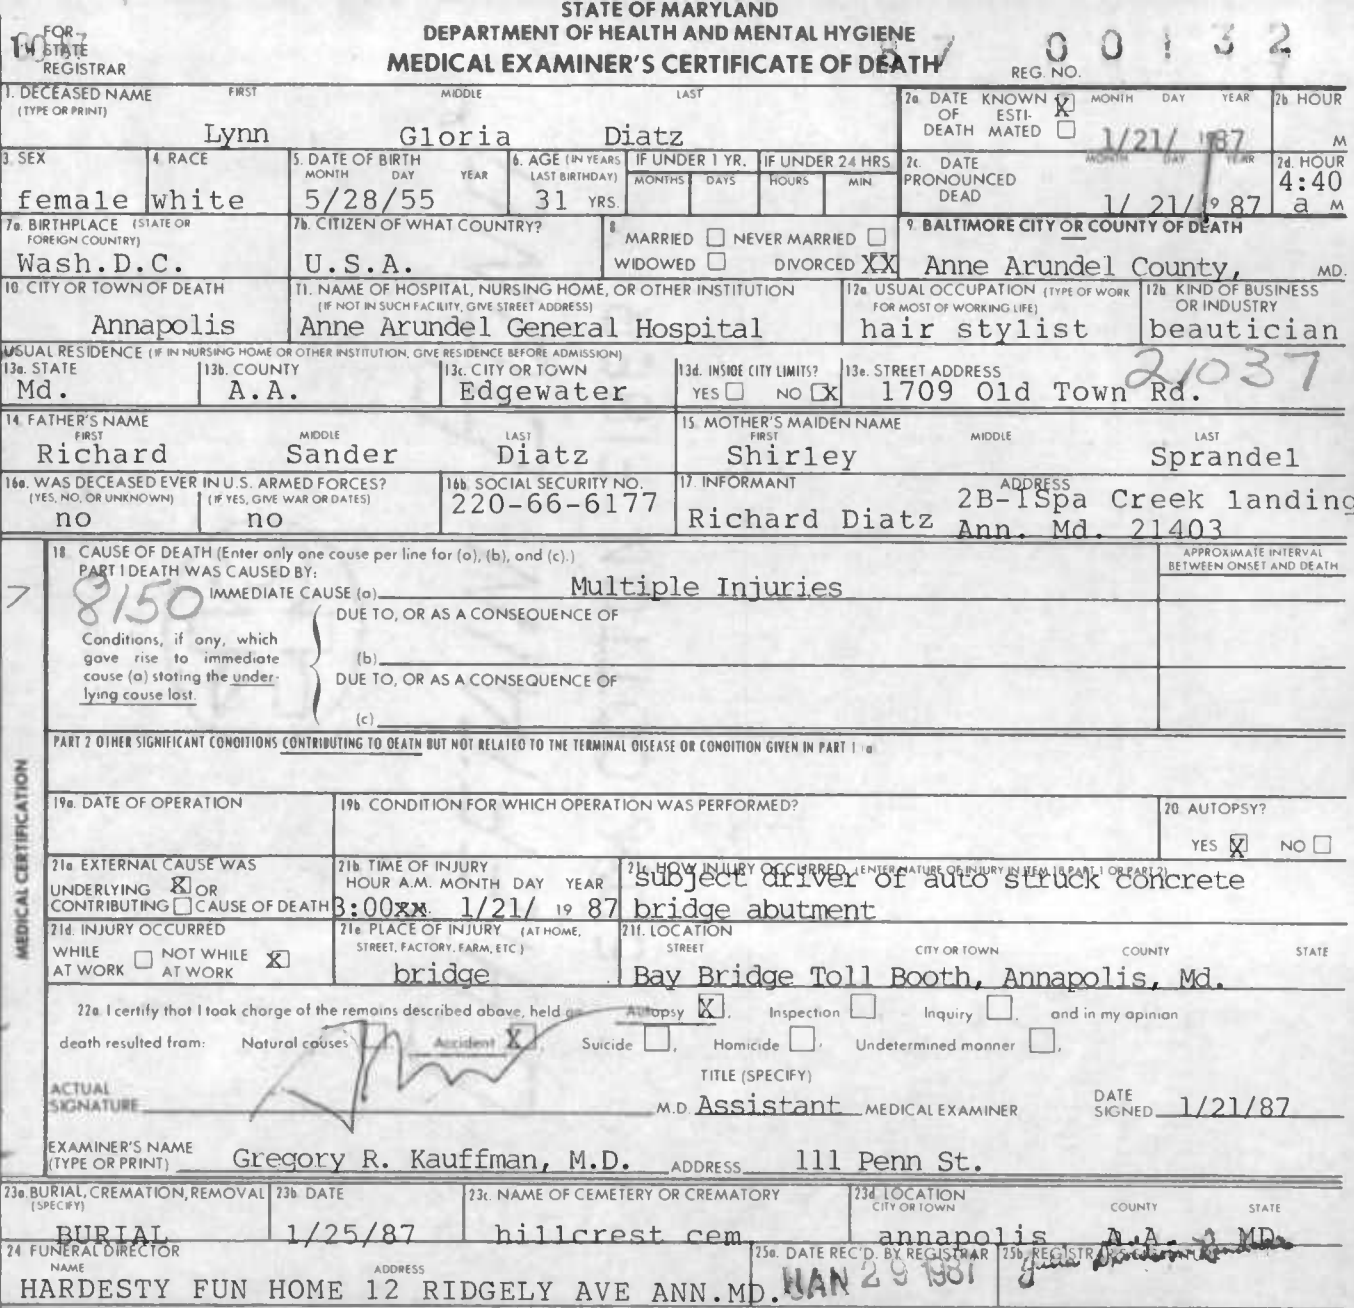 STATE OF MARYLAND
DEPARTMENT OF HEALTH AND MENTAL HYGIENE
MEDICAL EXAMINER'S CERTIFICATE OF DEATH
FOR STATE REGISTRAR
REG. NO. 87 00132
1. DECEASED NAME (TYPE OR PRINT) FIRST MIDDLE LAST
Lynn Gloria Diatz
2a DATE OF DEATH KNOWN X ESTIMATED MONTH DAY YEAR 1/21/ 1987
2b HOUR M
3. SEX female
4. RACE white
5. DATE OF BIRTH MONTH DAY YEAR 5/28/55
6. AGE (IN YEARS LAST BIRTHDAY) 31 YRS.
IF UNDER 1 YR. MONTHS DAYS
IF UNDER 24 HRS HOURS MIN
2c. DATE PRONOUNCED DEAD MONTH DAY YEAR 1/ 21/ 19 87
2d. HOUR 4:40 a M
7a. BIRTHPLACE (STATE OR FOREIGN COUNTRY) Wash.D.C.
7b. CITIZEN OF WHAT COUNTRY? U.S.A.
8 MARRIED NEVER MARRIED
WIDOWED DIVORCED XX
9. BALTIMORE CITY OR COUNTY OF DEATH Anne Arundel County, MD.
10. CITY OR TOWN OF DEATH Annapolis
11. NAME OF HOSPITAL, NURSING HOME, OR OTHER INSTITUTION (IF NOT IN SUCH FACILITY, GIVE STREET ADDRESS)
Anne Arundel General Hospital
12a. USUAL OCCUPATION (TYPE OF WORK FOR MOST OF WORKING LIFE) hair stylist
12b KIND OF BUSINESS OR INDUSTRY beautician
USUAL RESIDENCE (IF IN NURSING HOME OR OTHER INSTITUTION, GIVE RESIDENCE BEFORE ADMISSION)
13a. STATE Md.
13b. COUNTY A.A.
13c. CITY OR TOWN Edgewater
13d. INSIDE CITY LIMITS? YES NO X
13e. STREET ADDRESS 21037
1709 Old Town Rd.
14. FATHER'S NAME FIRST MIDDLE LAST
Richard Sander Diatz
15. MOTHER'S MAIDEN NAME FIRST MIDDLE LAST
Shirley Sprandel
16a. WAS DECEASED EVER IN U.S. ARMED FORCES? (YES, NO, OR UNKNOWN) no (IF YES, GIVE WAR OR DATES) no
16b. SOCIAL SECURITY NO. 220-66-6177
17. INFORMANT ADDRESS
Richard Diatz 2B-1Spa Creek landing
Ann. Md. 21403
18. CAUSE OF DEATH (Enter only one cause per line for (a), (b), and (c).)
PART I DEATH WAS CAUSED BY:
APPROXIMATE INTERVAL BETWEEN ONSET AND DEATH
7
8150
IMMEDIATE CAUSE (a) Multiple Injuries
DUE TO, OR AS A CONSEQUENCE OF
Conditions, if any, which gave rise to immediate cause (a) stating the underlying cause last.
(b)
DUE TO, OR AS A CONSEQUENCE OF
(c)
PART 2 OTHER SIGNIFICANT CONDITIONS CONTRIBUTING TO DEATH BUT NOT RELATED TO THE TERMINAL DISEASE OR CONDITION GIVEN IN PART 1 a
MEDICAL CERTIFICATION
19a. DATE OF OPERATION
19b. CONDITION FOR WHICH OPERATION WAS PERFORMED?
20. AUTOPSY? YES X NO
21a EXTERNAL CAUSE WAS
UNDERLYING X OR
CONTRIBUTING CAUSE OF DEATH
21b. TIME OF INJURY
HOUR A.M. MONTH DAY YEAR
3:00xx 1/21/ 19 87
21c HOW INJURY OCCURRED (ENTER NATURE OF INJURY IN ITEM 18 PART 1 OR PART 2)
subject driver of auto struck concrete
bridge abutment
21d. INJURY OCCURRED
WHILE AT WORK NOT WHILE AT WORK X
21e. PLACE OF INJURY (AT HOME, STREET, FACTORY, FARM, ETC.)
bridge
21f. LOCATION STREET CITY OR TOWN COUNTY STATE
Bay Bridge Toll Booth, Annapolis, Md.
22a. I certify that I took charge of the remains described above, held an Autopsy X, Inspection, Inquiry, and in my opinion
death resulted from: Natural causes, Accident X, Suicide, Homicide, Undetermined manner.
TITLE (SPECIFY)
ACTUAL SIGNATURE M.D. Assistant MEDICAL EXAMINER
DATE SIGNED 1/21/87
EXAMINER'S NAME (TYPE OR PRINT) Gregory R. Kauffman, M.D. ADDRESS 111 Penn St.
23a. BURIAL, CREMATION, REMOVAL (SPECIFY) BURIAL
23b. DATE 1/25/87
23c. NAME OF CEMETERY OR CREMATORY hillcrest cem
23d. LOCATION CITY OR TOWN COUNTY STATE
annapolis A.A. MD.
24 FUNERAL DIRECTOR NAME ADDRESS
HARDESTY FUN HOME 12 RIDGELY AVE ANN.MD.
25a. DATE REC'D. BY REGISTRAR JAN 29 1987
25b. REGISTRAR